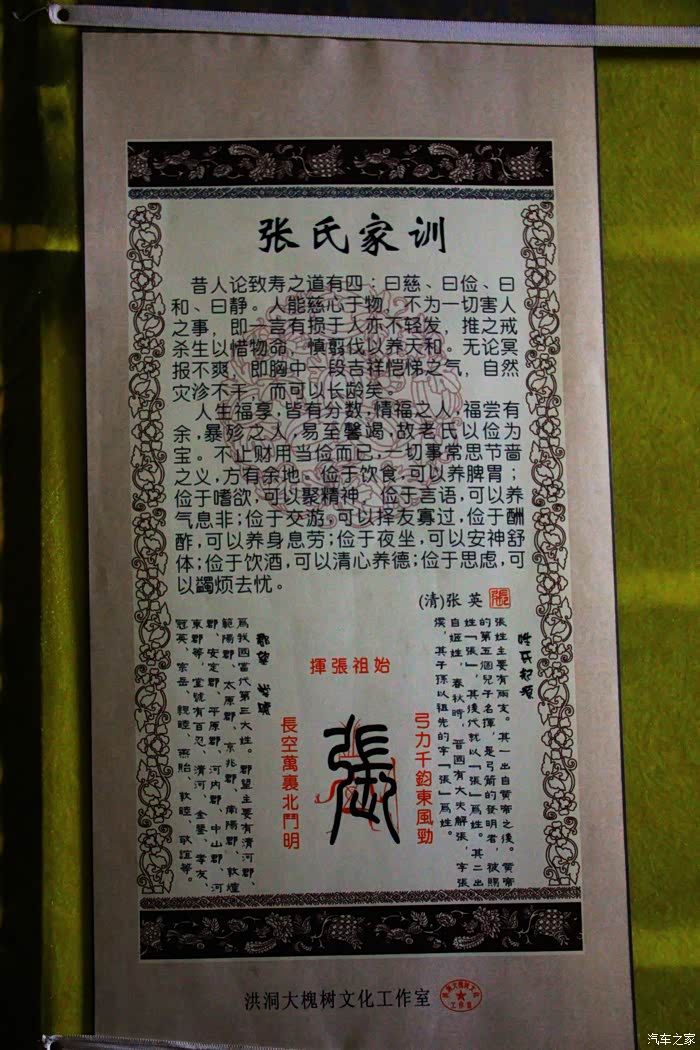 张氏家训
昔人论致寿之道有四：曰慈、曰俭、曰
和、曰静。人能慈心于物，不为一切害人
之事，即一言有损于人亦不轻发，推之戒
杀生以惜物命，慎翦伐以养天和。无论冥
报不爽，即胸中一段吉祥恺悌之气，自然
灾沴不干，而可以长龄矣。
人生福享，皆有分数，情福之人，福尝有
余，暴殄之人，易至馨竭，故老氏以俭为
宝。不止财用当俭而已，一切事常思节啬
之义，方有余地。俭于饮食，可以养脾胃；
俭于嗜欲，可以聚精神。俭于言语，可以养
气息非；俭于交游，可以择友寡过，俭于酬
酢，可以养身息劳；俭于夜坐，可以安神舒
体；俭于饮酒，可以清心养德；俭于思虑，可
以蠲烦去忧。
(清)张英
張
姓氏起源
張姓主要有兩支。其一出自黃帝之後。黃帝
的第五個兒子名揮，是弓箭的發明者，被賜
姓「張」，其後代就以「張」爲姓。其二出
自姬姓，春秋時，晉國有大夫解張，字張
侯，其子孫以祖先的字「張」爲姓。
揮張祖始
弓力千鈞東風勁
張
長空萬裏北鬥明
郡望 堂號
爲我國當代第三大姓。郡望主要有清河郡、
範陽郡、太原郡、京兆郡、南陽郡、敦煌
郡、安定郡、平原郡、河內郡、中山郡、河
東郡等，堂號有百忍、清河、金鑒、孝友、
冠英、宗岳、親睦、燕貽、敦睦、敬誼等。
洪洞大槐树文化工作室
汽车之家